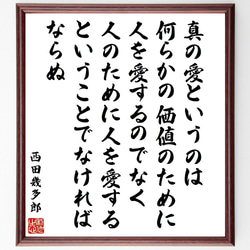 真の愛というのは
何らかの価値のために
人を愛するのでなく
人のために人を愛する
ということでなければ
ならぬ
西田幾多郎